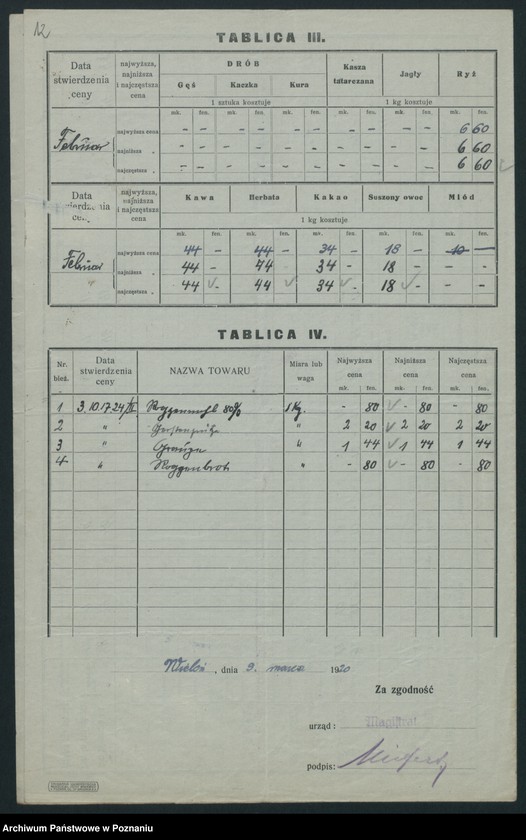 12
TABLICA III.
Data stwierdzenia ceny | najwyższa, najniższa i najczęstsza cena | DRÓB | Kasza tatarczana | Jagły | Ryż
Gęś | Kaczka | Kura
1 sztuka kosztuje | 1 kg kosztuje
mk. | fen. | mk. | fen. | mk. | fen. | mk. | fen. | mk. | fen. | mk. | fen.
Februar | najwyższa cena | - | - | - | - | - | - | - | - | - | - | 6 | 60
najniższa " | - | - | - | - | - | - | - | - | - | - | 6 | 60
najczęstsza " | - | - | - | - | - | - | - | - | - | - | 6 | 60
Data ceny | najwyższa, najniższa i najczęstsza cena | Kawa | Herbata | Kakao | Suszony owoc | Miód
1 kg kosztuje
mk. | fen. | mk. | fen. | mk. | fen. | mk. | fen. | mk. | fen.
Februar | najwyższa cena | 44 | - | 44 | - | 34 | - | 18 | - | 10 | -
najniższa " | 44 | - | 44 | - | 34 | - | 18 | - | - | -
najczęstsza " | 44 | - | 44 | - | 34 | - | 18 | - | - | -
TABLICA IV.
Nr. bież. | Data stwierdzenia ceny | NAZWA TOWARU | Miara lub waga | Najwyższa cena | Najniższa cena | Najczęstsza cena
mk. | fen. | mk. | fen. | mk. | fen.
1 | 3. 10. 17. 24/II. | Roggenmehl 80% | 1 Kg. | - | 80 | - | 80 | - | 80
2 | " | Gerstengrütze | " | 2 | 20 | 2 | 20 | 2 | 20
3 | " | Graupen | " | 1 | 44 | 1 | 44 | 1 | 44
4 | " | Roggenbrot | " | - | 80 | - | 80 | - | 80
Wieleń, dnia 9. marca 1920
Za zgodność
urząd: Magistrat
podpis:
Archiwum Państwowe w Poznaniu